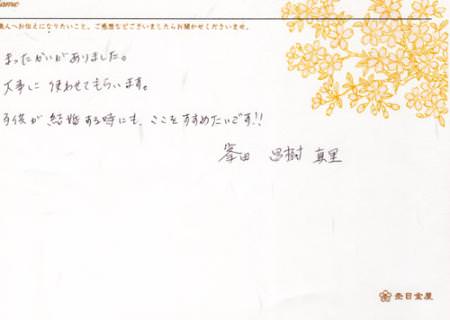 人へお伝えになりたいこと、ご感想などございましたらお聞かせくださいませ。
まったかいがありました。
大事に使わせてもらいます。
子供が結婚する時にも、ここをすすめたいです!!
峯田 昌樹 真里
杢目金屋